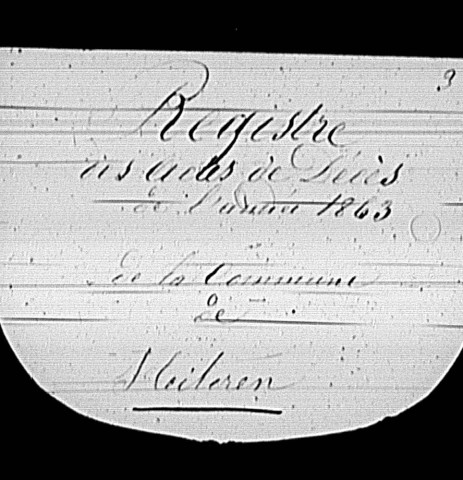 3
Registre
des Actes de Décès
de l'année 1863
de la Commune
de